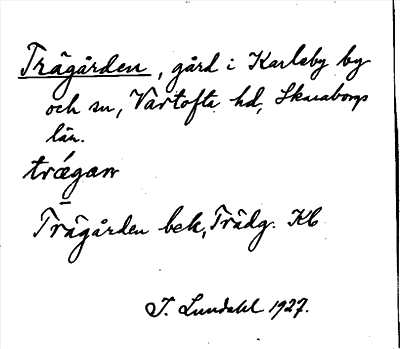 Trägården, gård i Karleby by
och sn, Vartofta hd, Skaraborgs
län.
trǽgan
Trägården bek, Trädg. Kb
I. Lundahl 1927.